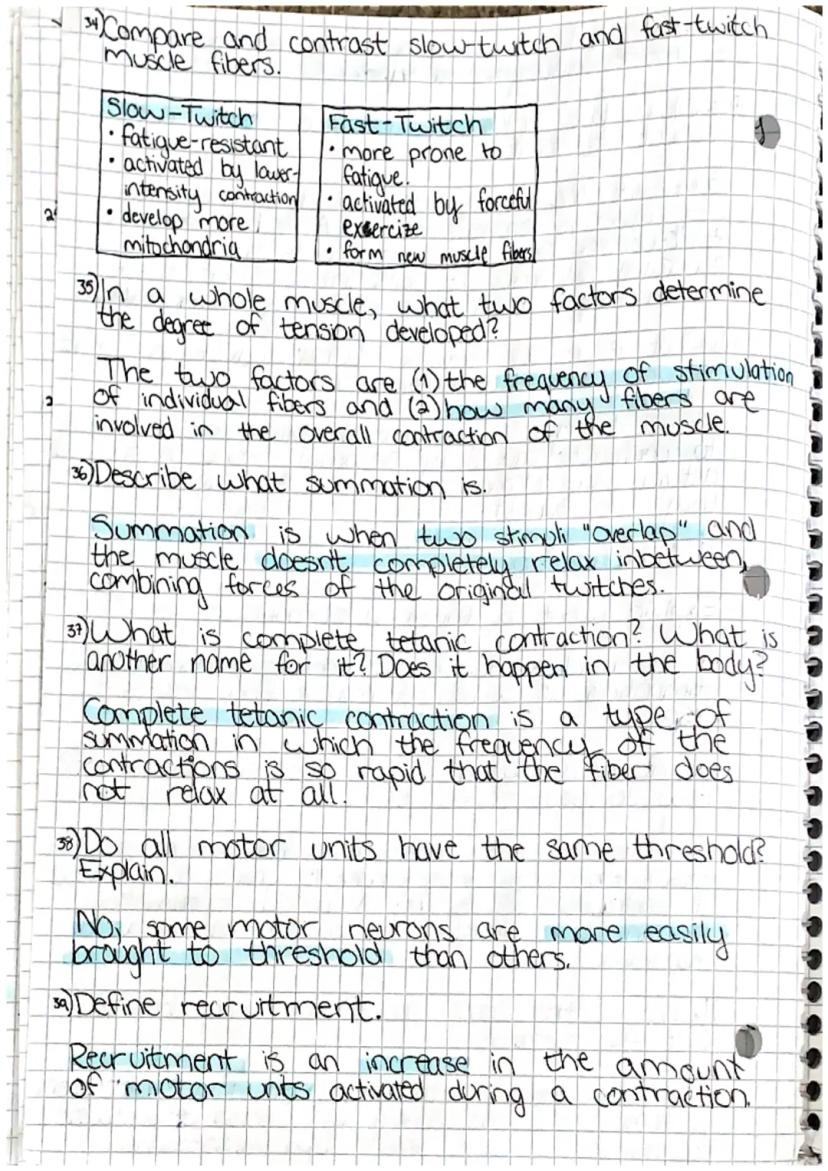 34) Compare and contrast slow-twitch and fast-twitch
muscle fibers.
Slow-Twitch
• fatigue-resistant
• activated by lower-
intensity contraction
• develop more
mitochondria
Fast-Twitch
• more prone to
fatigue.
• activated by forceful
exercize
• form new muscle fibers
35) In a whole muscle, what two factors determine
the degree of tension developed?
The two factors are (1) the frequency of stimulation
of individual fibers and (2) how many fibers are
involved in the overall contraction of the muscle.
36) Describe what summation is.
Summation is when two stimuli "overlap" and
the muscle doesn't completely relax inbetween,
combining forces of the original twitches.
37) What is complete tetanic contraction? What is
another name for it? Does it happen in the body?
Complete tetanic contraction is a type of
summation in which the frequency of the
contractions is so rapid that the fiber does
not relax at all.
38) Do all motor units have the same threshold?
Explain.
No, some motor neurons are more easily
brought to threshold than others.
39) Define recruitment.
Recruitment is an increase in the amount
of motor units activated during a contraction.